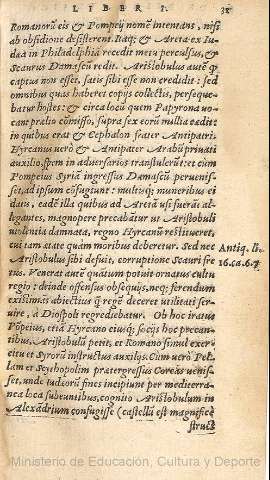 LIBER I. 38
Romanorũ eis & Pompeij nomẽ intentans, nisi
ab obsidione desisterent. Itaq; & Areta ex Iu-
dæa in Philadelphiã recedit metu perculsus, &
Scaurus Damascũ redit. Aristobulus autẽ ꝙ
captus non esset, satis sibi esse non credidit: sed
omnibus quas haberet copijs collectis, perseque-
batur hostes: & circa locũ quem Papyrona vo-
cant prælio cõmisso, supra sex eorũ millia cædit:
in quibus erat & Cephalon frater Antipatri.
Hyrcanus verò & Antipater Arabũ priuati
auxilio, spem in aduersarios transtulerũt: et cùm
Pompeius Syriã ingressus Damascũ peruenis-
set, ad ipsum cõfugiunt: multisq; muneribus ei
datis, eadẽ illa quibus ad Aretã vsi fuerãt al-
legantes, magnopere precabãtur vt Aristobuli
violentia damnata, regno Hyrcanũ restitueret,
cui tam ætate quàm moribus deberetur. Sed nec
Aristobulus sibi defuit, corruptione Scauri fre-
tus. Venerat autẽ quãtum potuit ornatus cultu
regio: deinde offensus obsequijs, neq; ferendum
existimãs abiectius ꝗ̃ regẽ deceret vtilitati ser-
uire, à Diospoli regrediebatur. Ob hoc iratus
Põpeius, etiã Hyrcano eiusq; socijs hoc precan-
tibus, Aristobulũ petit, et Romano simul exer-
citu et Syrorũ instructus auxilijs. Cum verò Pel-
lam et Scythopolim prætergressus Coreas venis-
set, vnde Iudæorũ fines incipiunt per mediterra-
nea loca subeuntibus, cognito Aristobulum in
Alexãdrium confugisse (castelli est magnificè
struct
Antiq. li.
16. ca. 6. 7
Ministerio de Educación, Cultura y Deporte